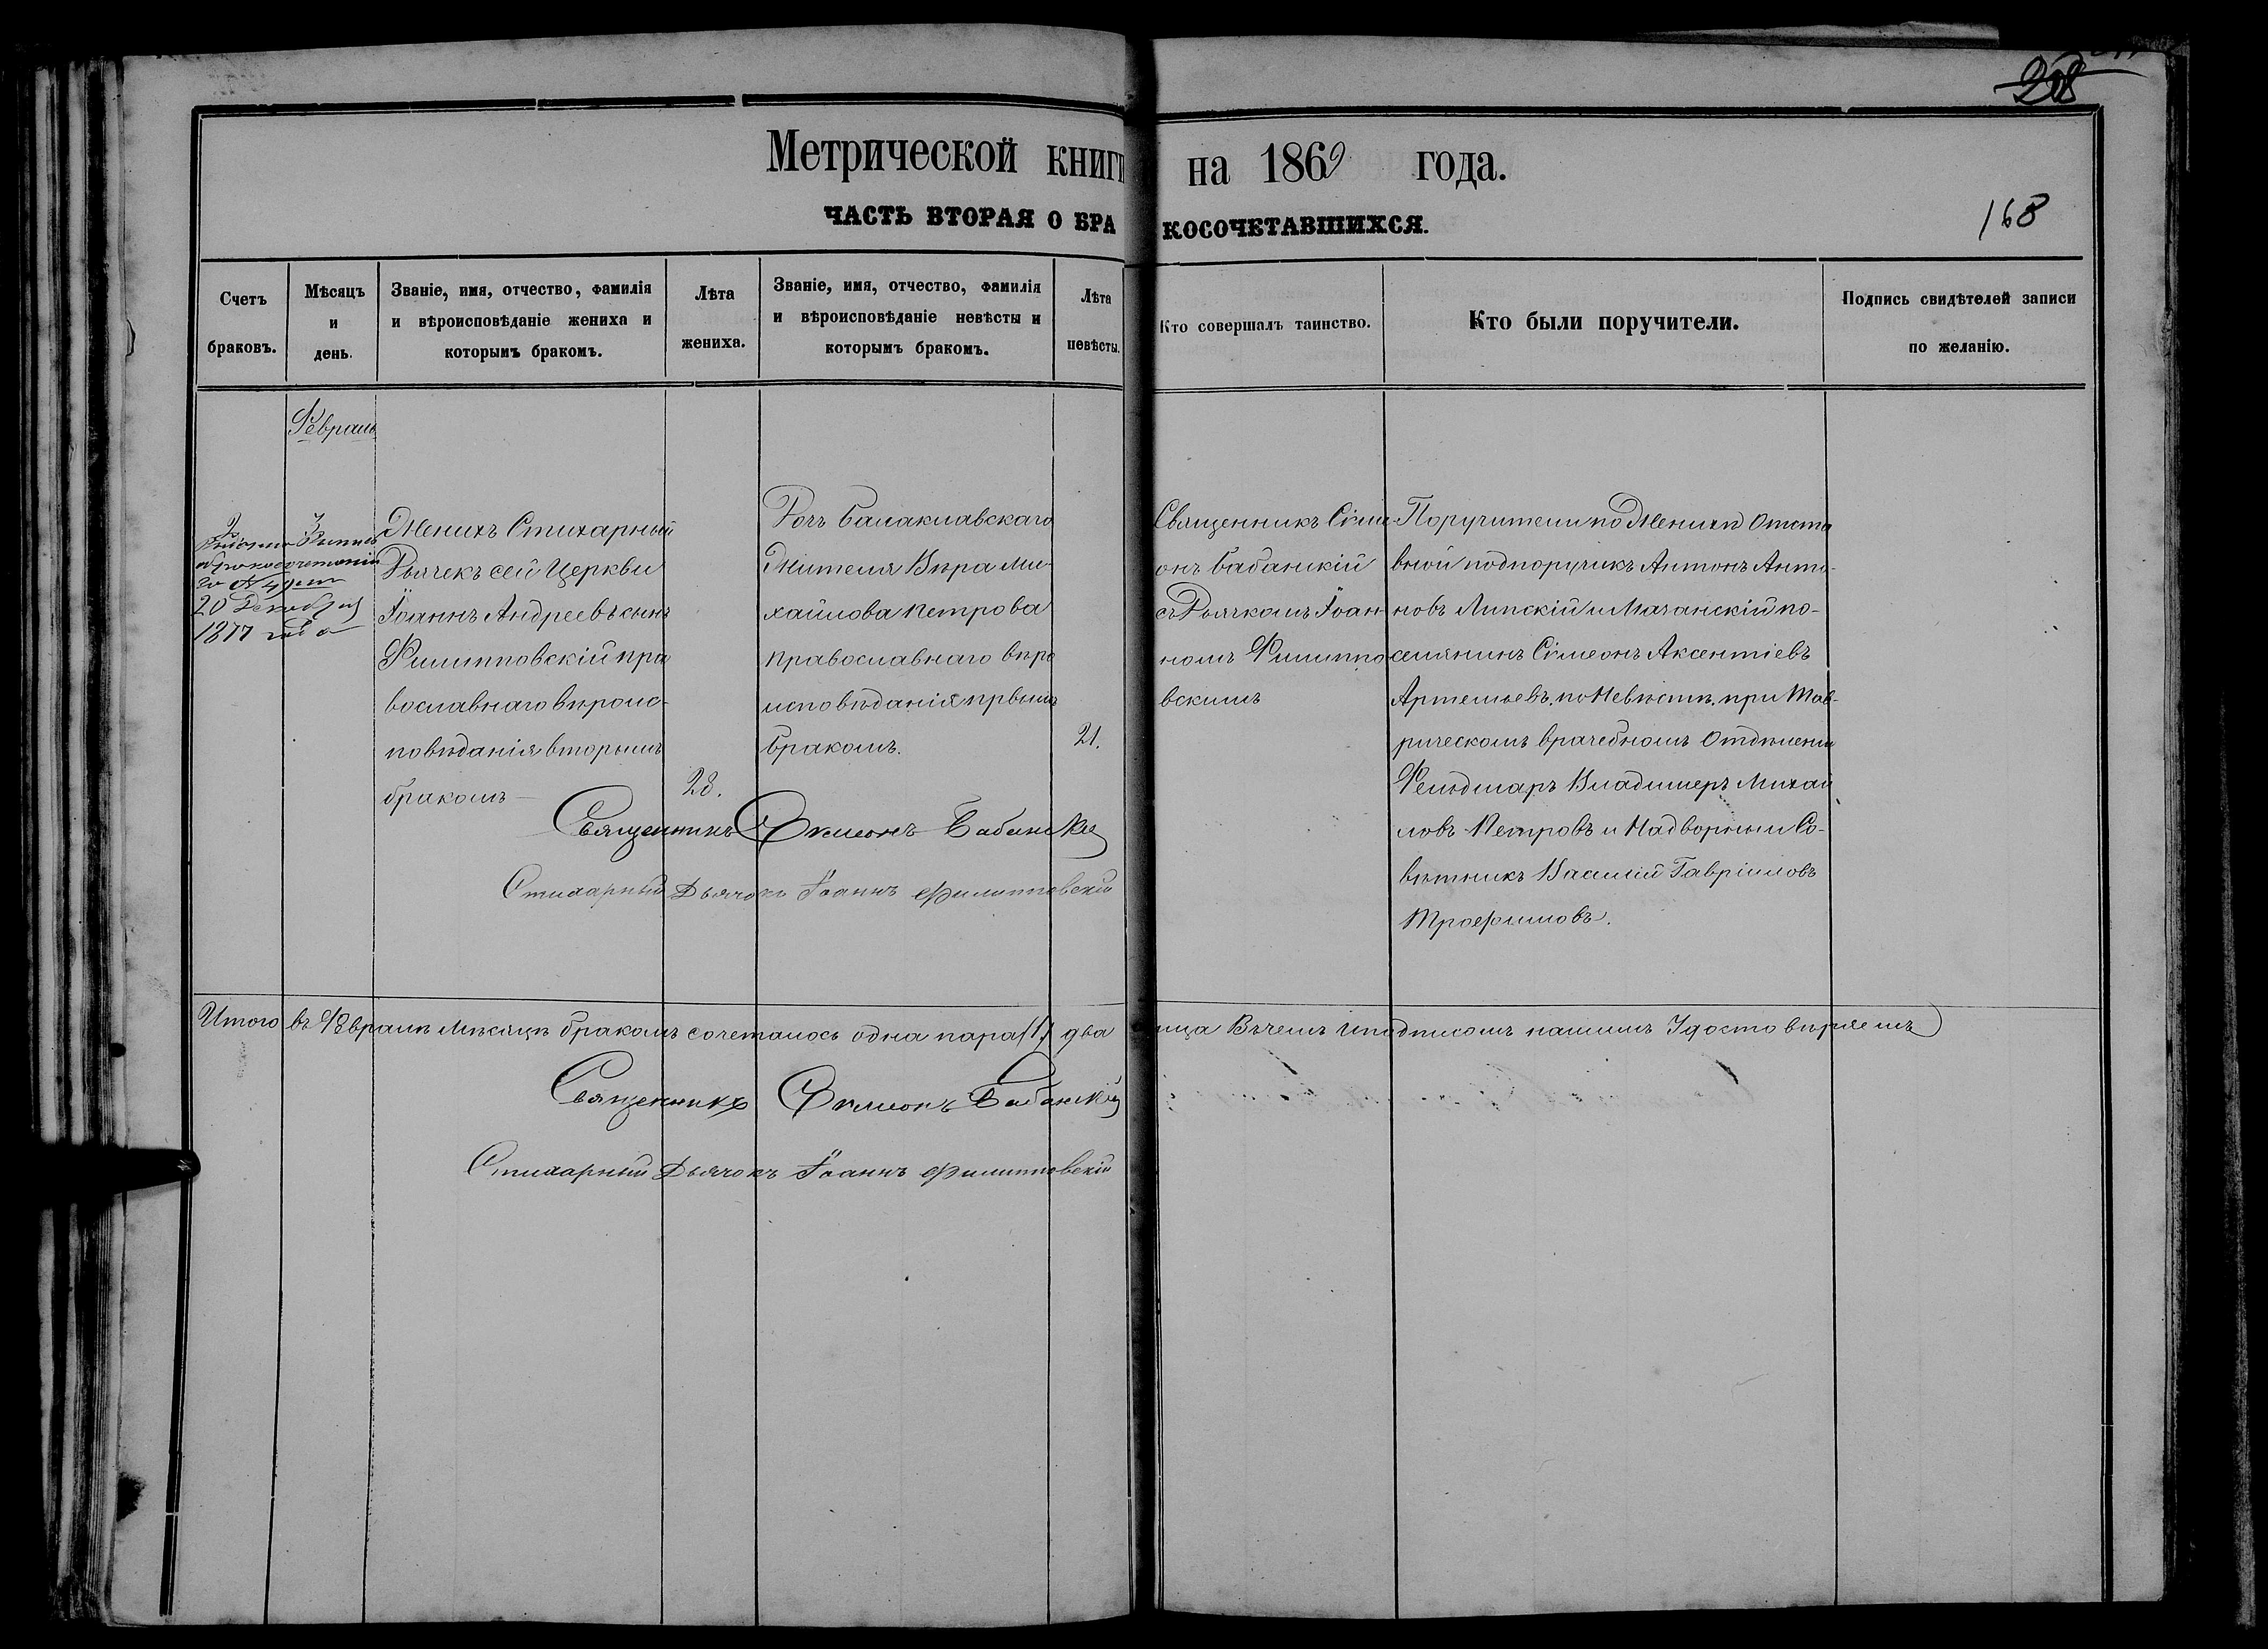 208
Метрической книги на 1869 года.
ЧАСТЬ ВТОРАЯ О БРАКОСОЧЕТАВШИХСЯ.
168
Счетъ браковъ.
Мѣсяцъ и день.
Званіе, имя, отчество, фамилія и вѣроисповѣданіе жениха и которымъ бракомъ.
Лѣта жениха.
Званіе, имя, отчество, фамилія и вѣроисповѣданіе невѣсты и которымъ бракомъ.
Лѣта невѣсты.
Кто совершалъ таинство.
Кто были поручители.
Подпись свидѣтелей записи по желанію.
Февраль
2
3
о бракосочетаніи
20 Декабря
1877 года
Женихъ Стихарный
Дьячекъ сей Церкви
Іоаннъ Андреевъ сынъ
Филипповскій пра
вославнаго вѣроис-
повѣданія вторымъ
бракомъ
28.
Дочь Балаклавскаго
Жителя Вѣра Ми-
хайлова Петрова
православнаго вѣро
исповѣданія првымъ
бракомъ.
21.
Священникъ Сіме
онъ Бабанскій
съ Дьячкомъ Іоан-
номъ Филиппо
вскимъ
Поручители по Женихѣ Отста
вной подпоручикъ Антонъ Анто-
новъ Липскій и Мачанскій по-
селянинъ Сімеонъ Аксентіевъ
Артемьевъ. по Невѣстѣ. при Тав-
рическомъ врачебномъ Отдѣлении
Фельдшаръ Владимеръ Михай
ловъ Петровъ и Надворный Со-
вѣтникъ Василій Гавріиловъ
Трофимовъ.
Священникъ Симеонъ Бабанскій
Стихарный Дьячокъ Іоаннъ Филипповскій
Итого въ Февралѣ Мѣсяцѣ бракомъ сочеталось одна пара (1.) два лица Въчемъ иподписомъ нашимъ Удостовѣряемъ
Священникъ Симеонъ Бабанскій
Стихарный Дьячокъ Іоаннъ Филипповскій